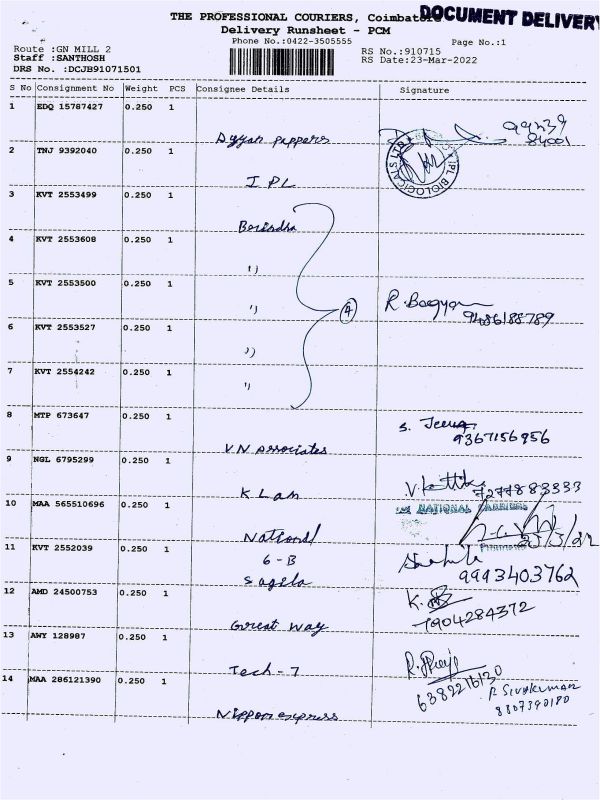 THE PROFESSIONAL COURIERS, Coimbatore
DOCUMENT DELIVERY
Delivery Runsheet - PCM
Phone No.:0422-3505555
Page No.:1
Route :GN MILL 2
RS No.:910715
Staff :SANTHOSH
RS Date:23-Mar-2022
DRS No. :DCJB91071501
S No Consignment No Weight PCS Consignee Details Signature
1 EDQ 15787427 0.250 1
2 TNJ 9392040 0.250 1
IPL
3 KVT 2553499 0.250 1
4 KVT 2553608 0.250 1
5 KVT 2553500 0.250 1
R. Bagya
9486188789
6 KVT 2553527 0.250 1
7 KVT 2554242 0.250 1
8 MTP 673647 0.250 1
S. Jeeva
9367156956
VN Associates
9 NGL 6795299 0.250 1
7277883333
K Lan
10 MAA 565510696 0.250 1
NATIONAL CARRIERS
National
11 KVT 2552039 0.250 1
6-B
Sagela
9943403762
12 AMD 24500753 0.250 1
K.
7904284372
Great Way
13 AWY 128987 0.250 1
Tech-7
14 MAA 286121390 0.250 1
6382216130
R Sivakumar
8807390180
Nippon express